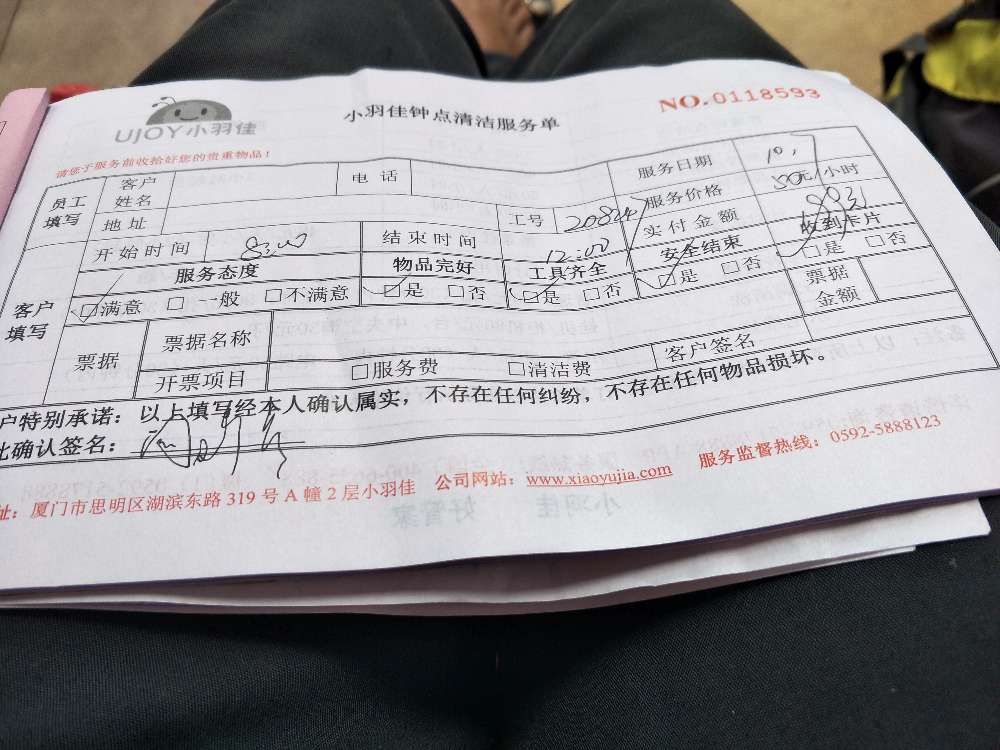 UJOY小羽佳
小羽佳钟点清洁服务单
NO.0118593
请您于服务前收拾好您的贵重物品！
员工填写 客户姓名 电话 服务日期 10.7
地址 工号 服务价格 30元/小时
开始时间 8:00 结束时间 12:00 实付金额
客户填写 服务态度 物品完好 工具齐全 安全结束 收到卡片
□满意 □一般 □不满意 □是 □否 □是 □否 □是 □否 □是 □否
票据 票据名称 票据金额
开票项目 □服务费 □清洁费 客户签名
户特别承诺：以上填写经本人确认属实，不存在任何纠纷，不存在任何物品损坏。
此确认签名：
址：厦门市思明区湖滨东路319号A幢2层小羽佳 公司网站：www.xiaoyujia.com 服务监督热线：0592-5888123